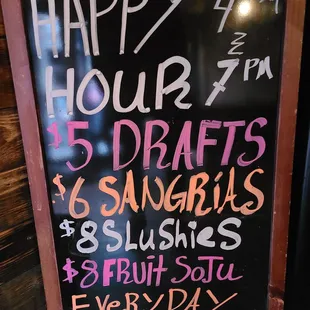 HAPPY 4
HOUR 7 PM
$5 DRAFTS
$6 SANGRÍAS
$8 SLusHies
$8 FRUIT SoJu
EVERYDAY